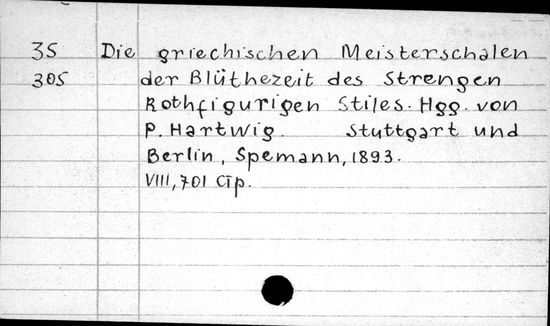 35 Die griechischen Meisterschalen
305 der Blüthezeit des Strengen
Rothfigurigen Stiles. Hgg. von
P. Hartwig. Stuttgart und
Berlin, Spemann, 1893.
VIII, 701 стр.